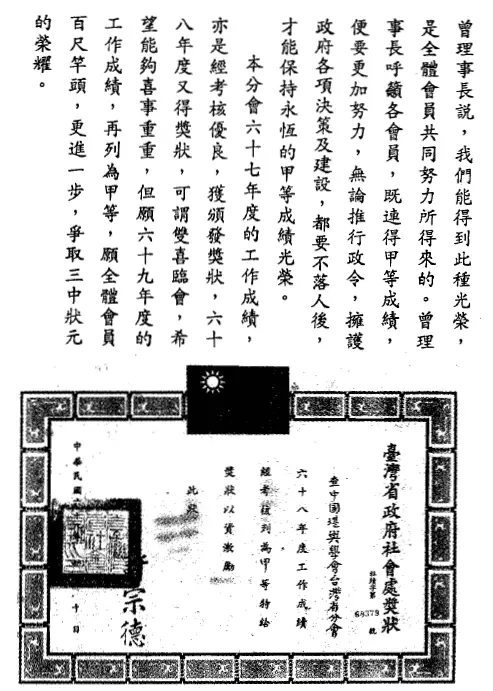 曾理事長説，我們能得到此種光榮，
是全體會員共同努力所得來的。曾理
事長呼籲各會員，既連得甲等成績，
便要更加努力，無論推行政令，擁護
政府各項決策及建設，都要不落人後，
才能保持永恆的甲等成績光榮。
本分會六十七年度的工作成績，
亦是經考核優良，獲頒發獎狀，六十
八年度又得獎狀，可謂雙喜臨會，希
望能夠喜事重重，但願六十九年度的
工作成績，再列為甲等，願全體會員
百尺竿頭，更進一步，爭取三中狀元
的榮耀。
臺灣省政府社會處獎狀
社績字第68379號
查中國堪輿學會台灣省分會
六十八年度工作成績
經考核列為甲等特給
獎狀以資激勵
此狀
宗德
中華民國 十日